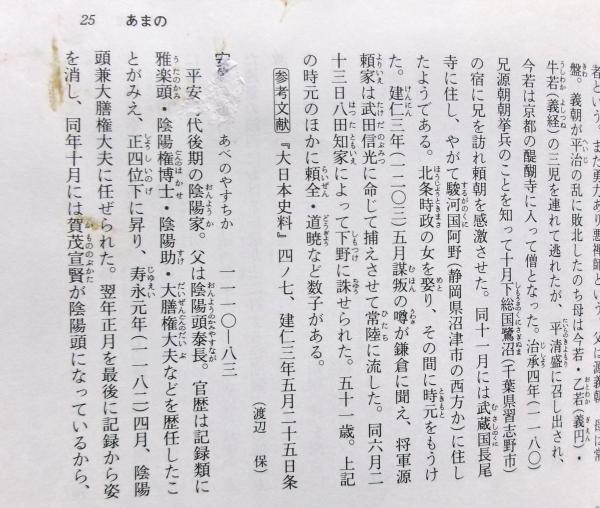 25 あまの
者という。また勇力あり悪禅師という。父は源義朝、母は常
盤。義朝が平治の乱に敗北したのち母は今若・乙若(義円)・
牛若(義経)の三児を連れて逃れたが、平清盛に召し出され、
今若は京都の醍醐寺に入って僧となった。治承四年(一一八〇)
兄源頼朝挙兵のことを知って十月下総国鷺沼(千葉県習志野市)
の宿に兄を訪れ頼朝を感激させた。同十一月には武蔵国長尾
寺に住し、やがて駿河国阿野(静岡県沼津市の西方か)に住し
たようである。北条時政の女を娶り、その間に時元をもうけ
た。建仁三年(一二〇三)五月謀叛の噂が鎌倉に聞え、将軍源
頼家は武田信光に命じて捕えさせて常陸に流した。同六月二
十三日八田知家によって下野に誅せられた。五十一歳。上記
の時元のほかに頼全・道暁など数子がある。
参考文献 『大日本史料』四ノ七、建仁三年五月二十五日条
(渡辺 保)
安 あべのやすちか 一一一〇―八三
平安 代後期の陰陽家。父は陰陽頭泰長。官歴は記録類に
雅楽頭・陰陽権博士・陰陽助・大膳権大夫などを歴任したこ
とがみえ、正四位下に昇り、寿永元年(一一八二)四月、陰陽
頭兼大膳権大夫に任ぜられた。翌年正月を最後に記録から姿
を消し、同年十月には賀茂宣賢が陰陽頭になっているから、